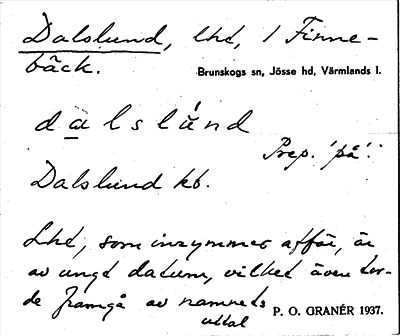 Dalslund, lht, 1 Finne-
bäck.
Brunskogs sn, Jösse hd, Värmlands l.
d a l s l ú n d
Prep. 'på':
Dalslund kb.
Lht, som inrymmer affär, är
av ungt datum, vilket även tor-
de framgå av namnets
uttal
P. O. GRANÉR 1937.